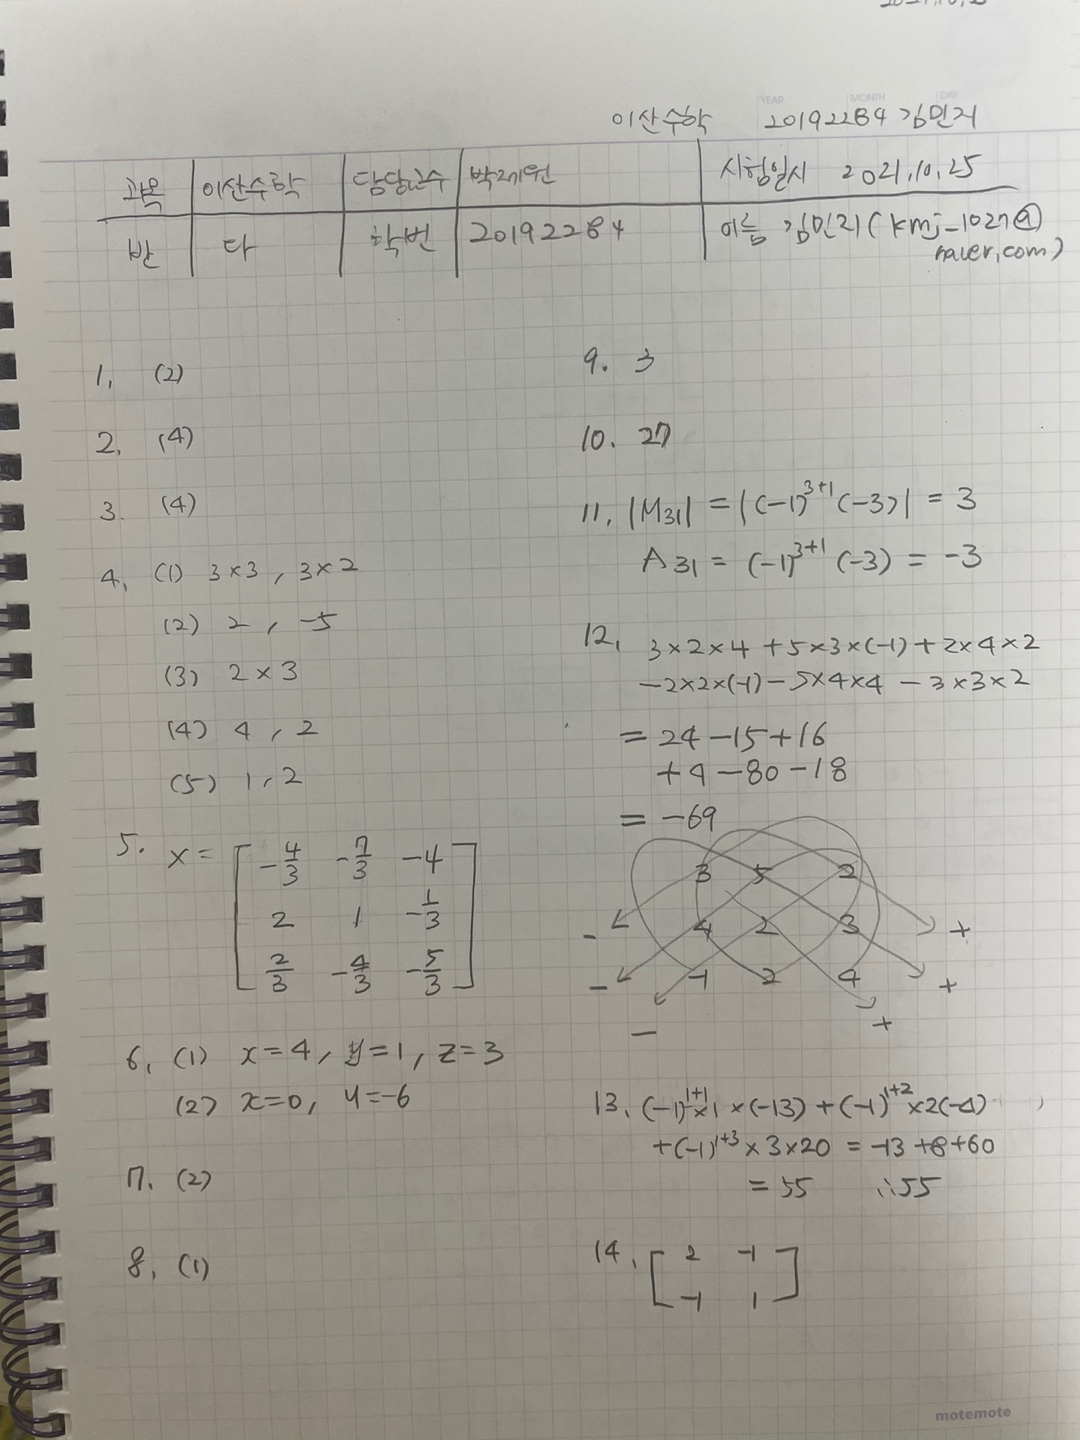 이산수학 20192284 김민지
과목 이산수학 담당교수 박제원 시험일시 2021.10.25
반 다 학번 20192284 이름 김민지(kmj_1027@
naver.com)
1. (2)
2. (4)
3. (4)
4. (1) 3×3, 3×2
(2) 2, -5
(3) 2×3
(4) 4, 2
(5) 1, 2
5. x = [ -4/3 -7/3 -4
2 1 -1/3
2/3 -4/3 -5/3 ]
6. (1) x=4, y=1, z=3
(2) x=0, y=-6
7. (2)
8. (1)
9. 3
10. 27
11. |M₃₁| = |(-1)³⁺¹(-3)| = 3
A₃₁ = (-1)³⁺¹(-3) = -3
12. 3×2×4+5×3×(-1)+2×4×2
-2×2×(-1)-5×4×4-3×3×2
= 24-15+16
+4-80-18
= -69
3 5 2
- 4 2 3 +
- -1 2 4 +
- +
13. (-1)¹⁺¹×1×(-13)+(-1)¹⁺²×2(-4)
+(-1)¹⁺³×3×20 = -13+8+60
= 55 ∴55
14. [ 2 -1
-1 1 ]
motemote